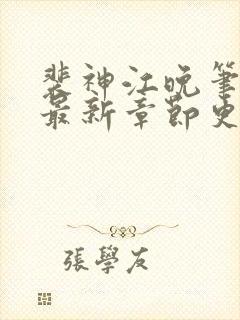 裴神江晚笔
最新章節史
張學友